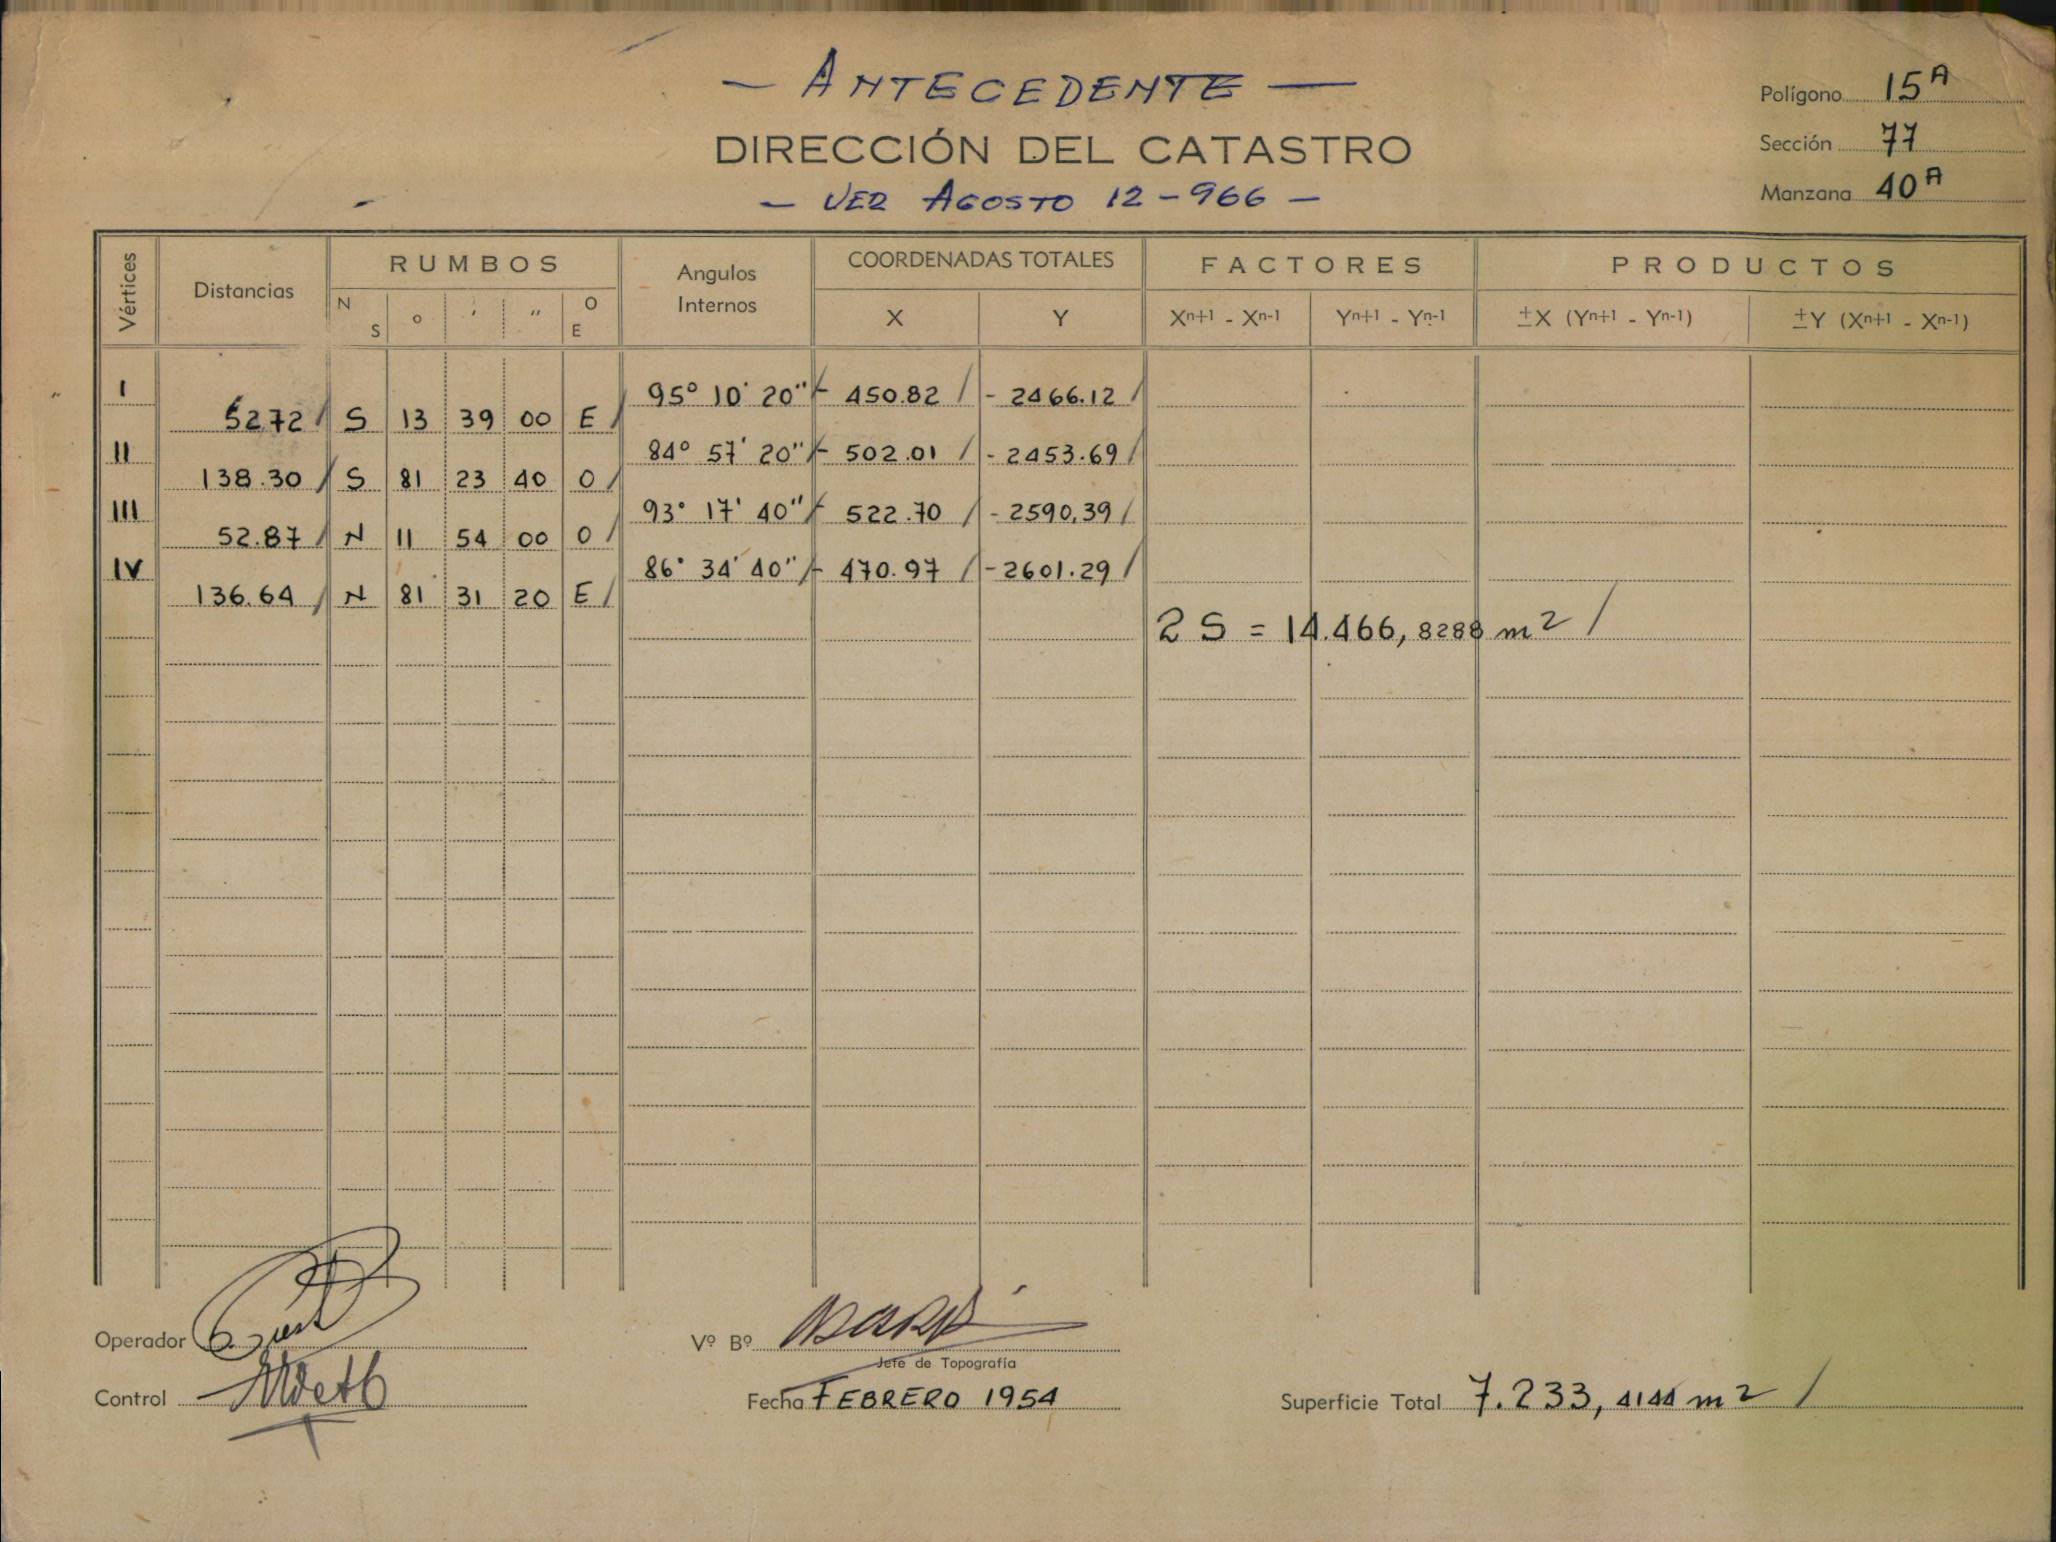 — ANTECEDENTE —
DIRECCIÓN DEL CATASTRO
— VER AGOSTO 12-966 —
Polígono 15A
Sección 77
Manzana 40A
Vértices Distancias RUMBOS Angulos Internos COORDENADAS TOTALES FACTORES PRODUCTOS
N S o ' " O E X Y Xn+1 - Xn-1 Yn+1 - Yn-1 ±X (Yn+1 - Yn-1) ±Y (Xn+1 - Xn-1)
I 95° 10' 20" - 450.82 / - 2466.12 /
52.72 / S 13 39 00 E /
II 84° 57' 20" - 502.01 / - 2453.69 /
138.30 / S 81 23 40 O /
III 93° 17' 40" - 522.70 / - 2590,39 /
52.87 / N 11 54 00 O /
IV 86° 34' 40" - 470.97 / - 2601.29 /
136.64 / N 81 31 20 E /
2 S = 14.466, 8288 m2 /
Operador
Vº Bº
Jefe de Topografía
Control
Fecha FEBRERO 1954
Superficie Total 7.233, 4144 m2 /